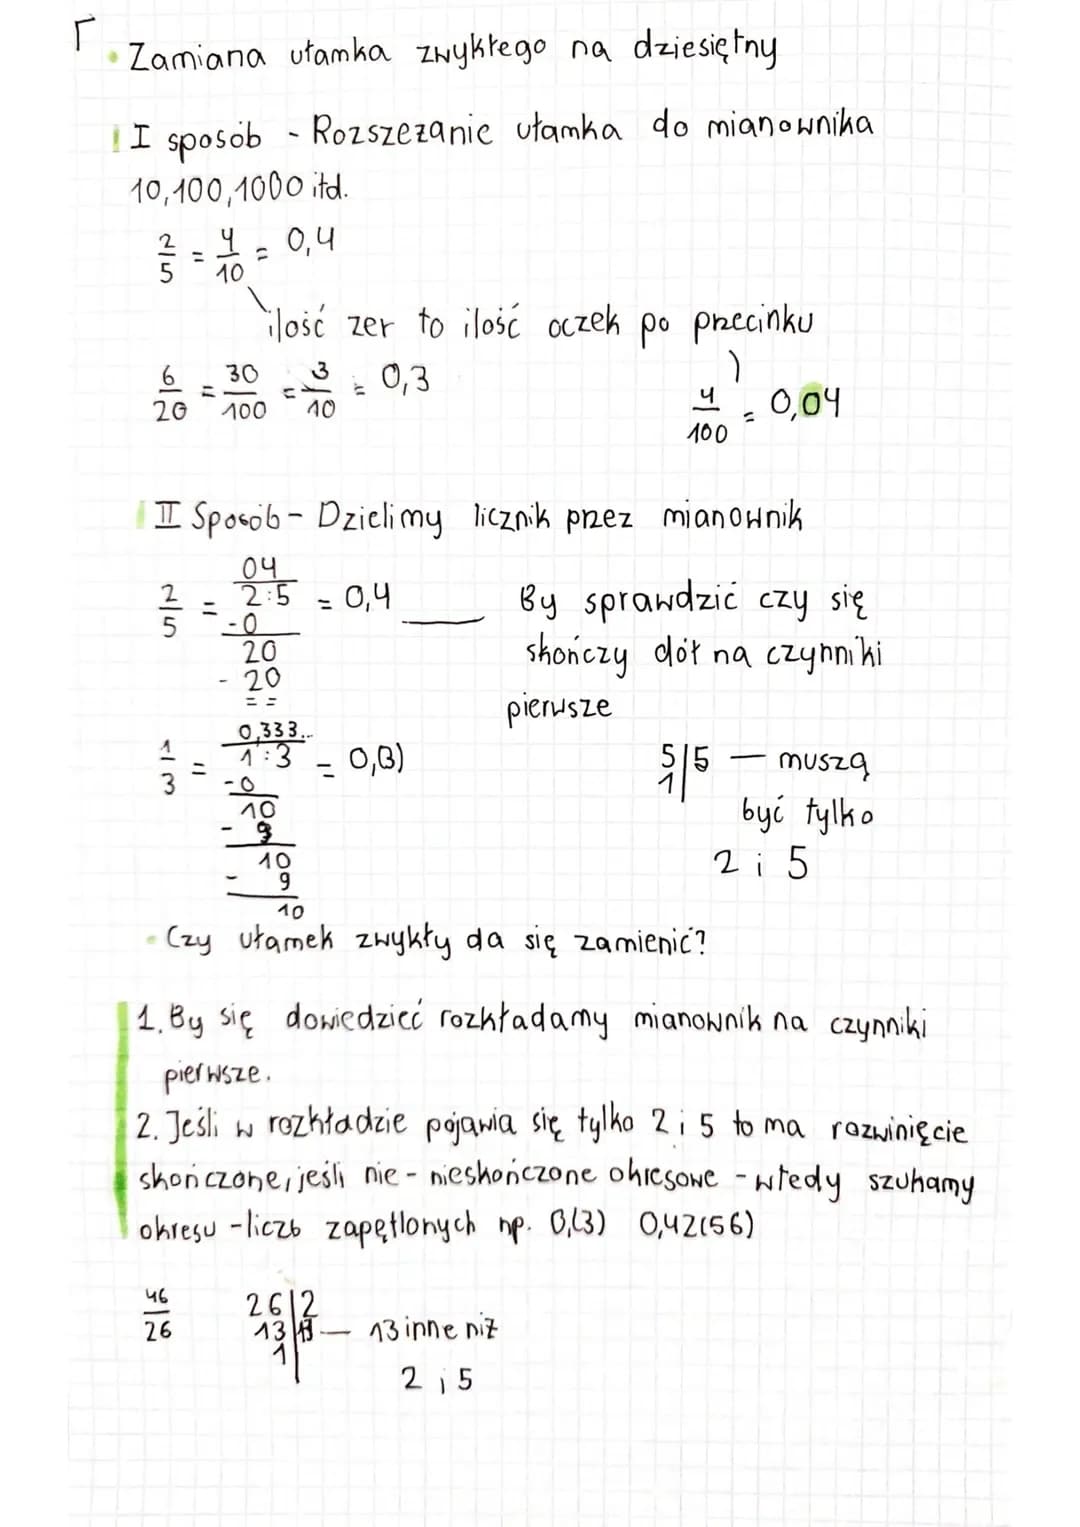 • Zamiana ułamka zwykłego na dziesiętny
I sposób - Rozszezanie ułamka do mianownika
10,100,1000 itd.
2/5 = 4/10 = 0,4
ilość zer to ilość oczek po przecinku
6/20 = 30/100 = 3/10 = 0,3
4/100 = 0,04
II Sposób - Dzielimy licznik przez mianownik
04
2/5 = 2:5 = 0,4
-0
20
- 20
= =
By sprawdzić czy się
skończy dół na czynniki
pierwsze
5|5 — muszą
1|
być tylko
2 i 5
0,333...
1/3 = 1:3 = 0,(3)
-0
10
- 9
10
- 9
10
• Czy ułamek zwykły da się zamienić?
1. By się dowiedzieć rozkładamy mianownik na czynniki
pierwsze.
2. Jeśli w rozkładzie pojawia się tylko 2 i 5 to ma rozwinięcie
skończone, jeśli nie - nieskończone okresowe - wtedy szukamy
okresu - liczb zapętlonych np. 0,(3) 0,42(56)
46/26
26|2
13|13 — 13 inne niż
1|
2 i 5